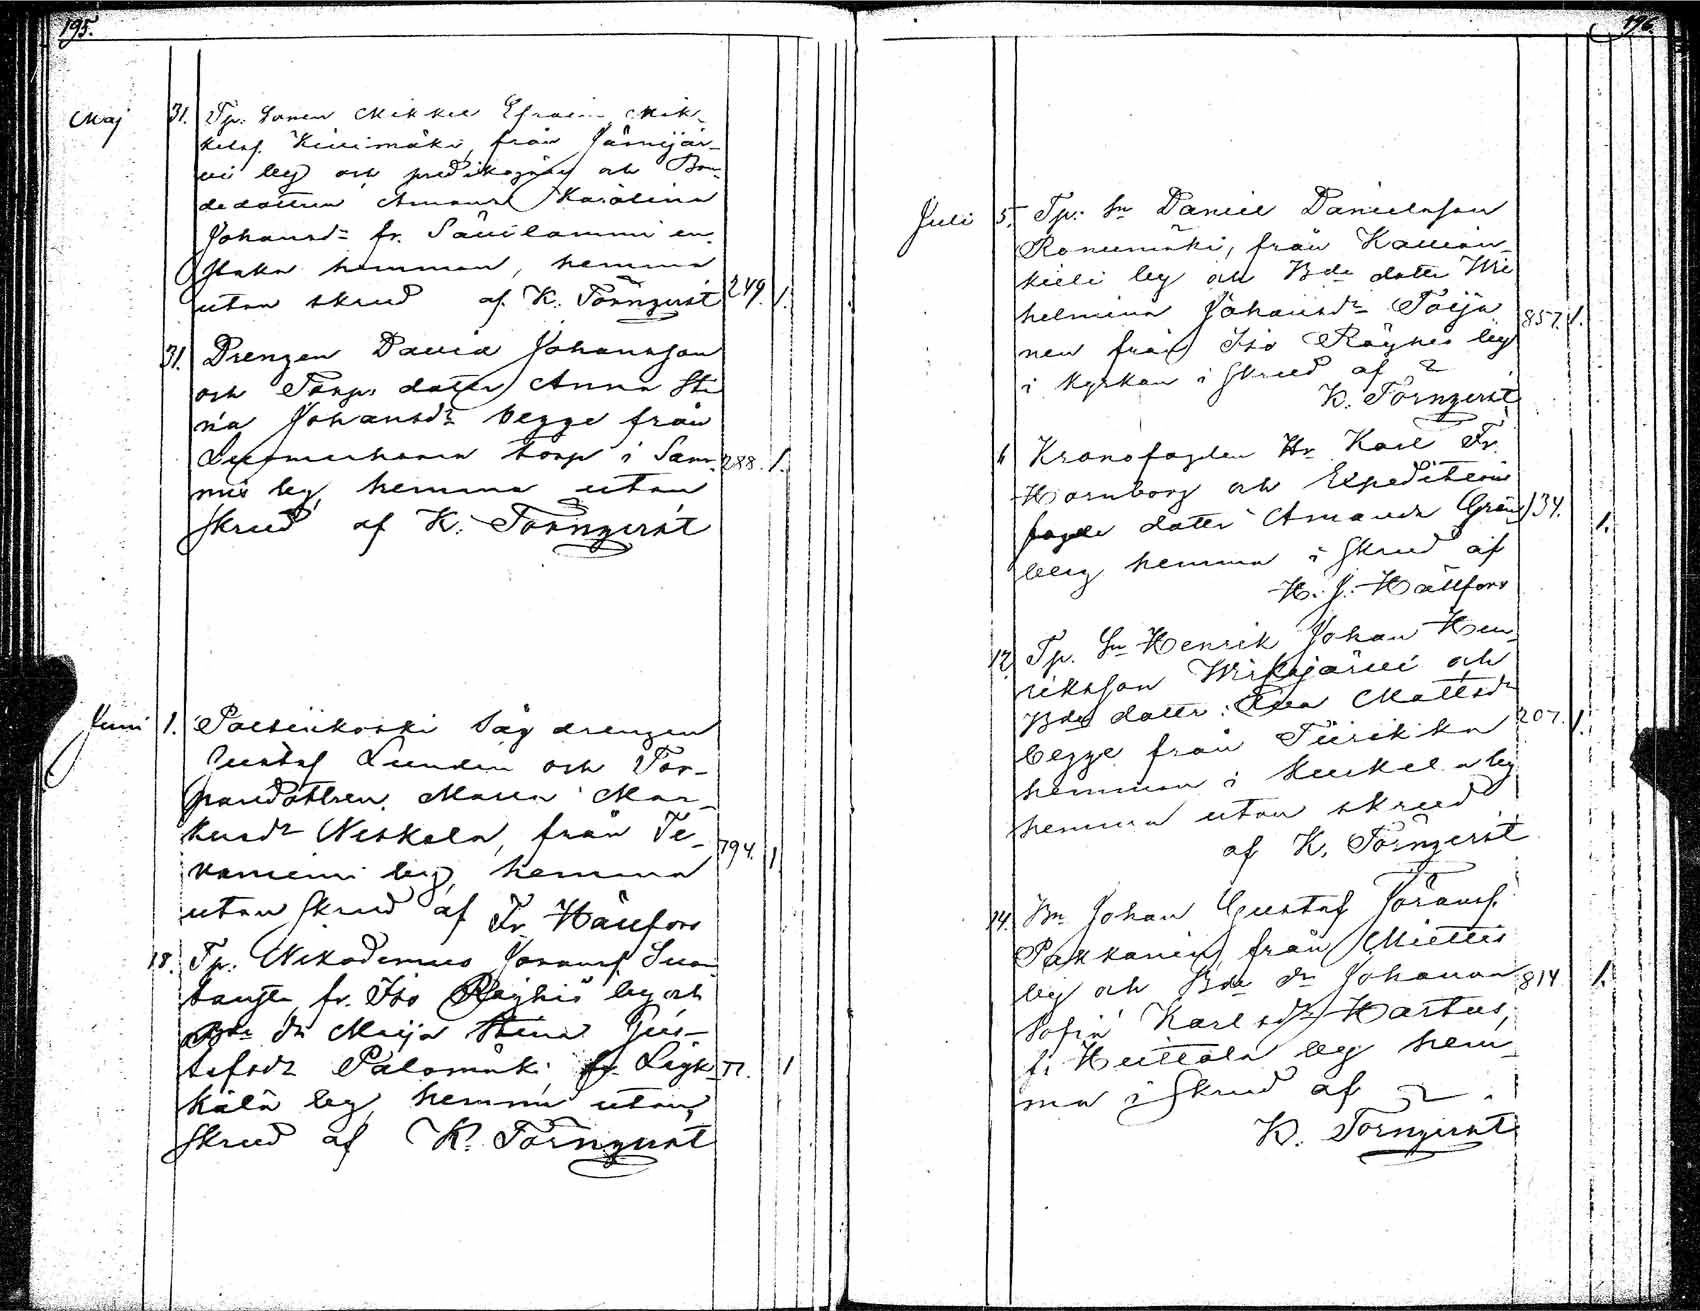 195.
Maj 31. Tp: Sonen Mikkel Efraim Mik-
kelsf. Kivimäki, från Jämijär-
vi by och predikogård och Bon-
dedottren Amanda Karolina
Johansdr fr. Sävilammi en-
staka hemman, hemma
utan skrud af K. Törnqvist 249. 1.
31. Drengen David Johansson
och Torp. dotter Anna Sti
na Johansdr begge från
torp i Sam-
mi by, hemma utan 288. 1.
skrud af K. Törnqvist
Juni 1. såg drengen
Gustaf Lundin och Tor-
paredottren Maria Mar-
kusdr Niskala, från Te-
vaniemi by, hemma 794. 1
utan skrud af Fr. Hällfors
18. Tp. Nikodemus
fr. Iso Röyhiö by och
Bde dr Maija Stina Gus-
tafsdr Palomäki, fr. Leyk- 77. 1
kälä by, hemma utan
skrud af K. Törnqvist
196.
Juli 5. Tp: Sn Daniel Danielsson
från
by och Bde dotter Wil
helmina Johansdr
nen från Iso Röyhiö by 857. 1.
i kyrkan i skrud af
K. Törnqvist
6 Kronofogden Hr Karl Fr.
Hornborg och Expeditions
fogde dotter Amanda Grön 134. 1.
berg hemma i skrud af
K. J. Hällfors
12. Tp. Sn Henrik Johan Hen-
riksson Wirkajärvi och
Bde dotter Mattsdr
begge från 207. 1.
hemman i by
hemma utan skrud
af K. Törnqvist
14. Bn Johan Gustaf
Pakkanen från Miettis
by och Bde dr Johanna 814 1.
Sofia Karlsdr Hartus,
f. Heittola by hem-
ma i skrud af
K. Törnqvist